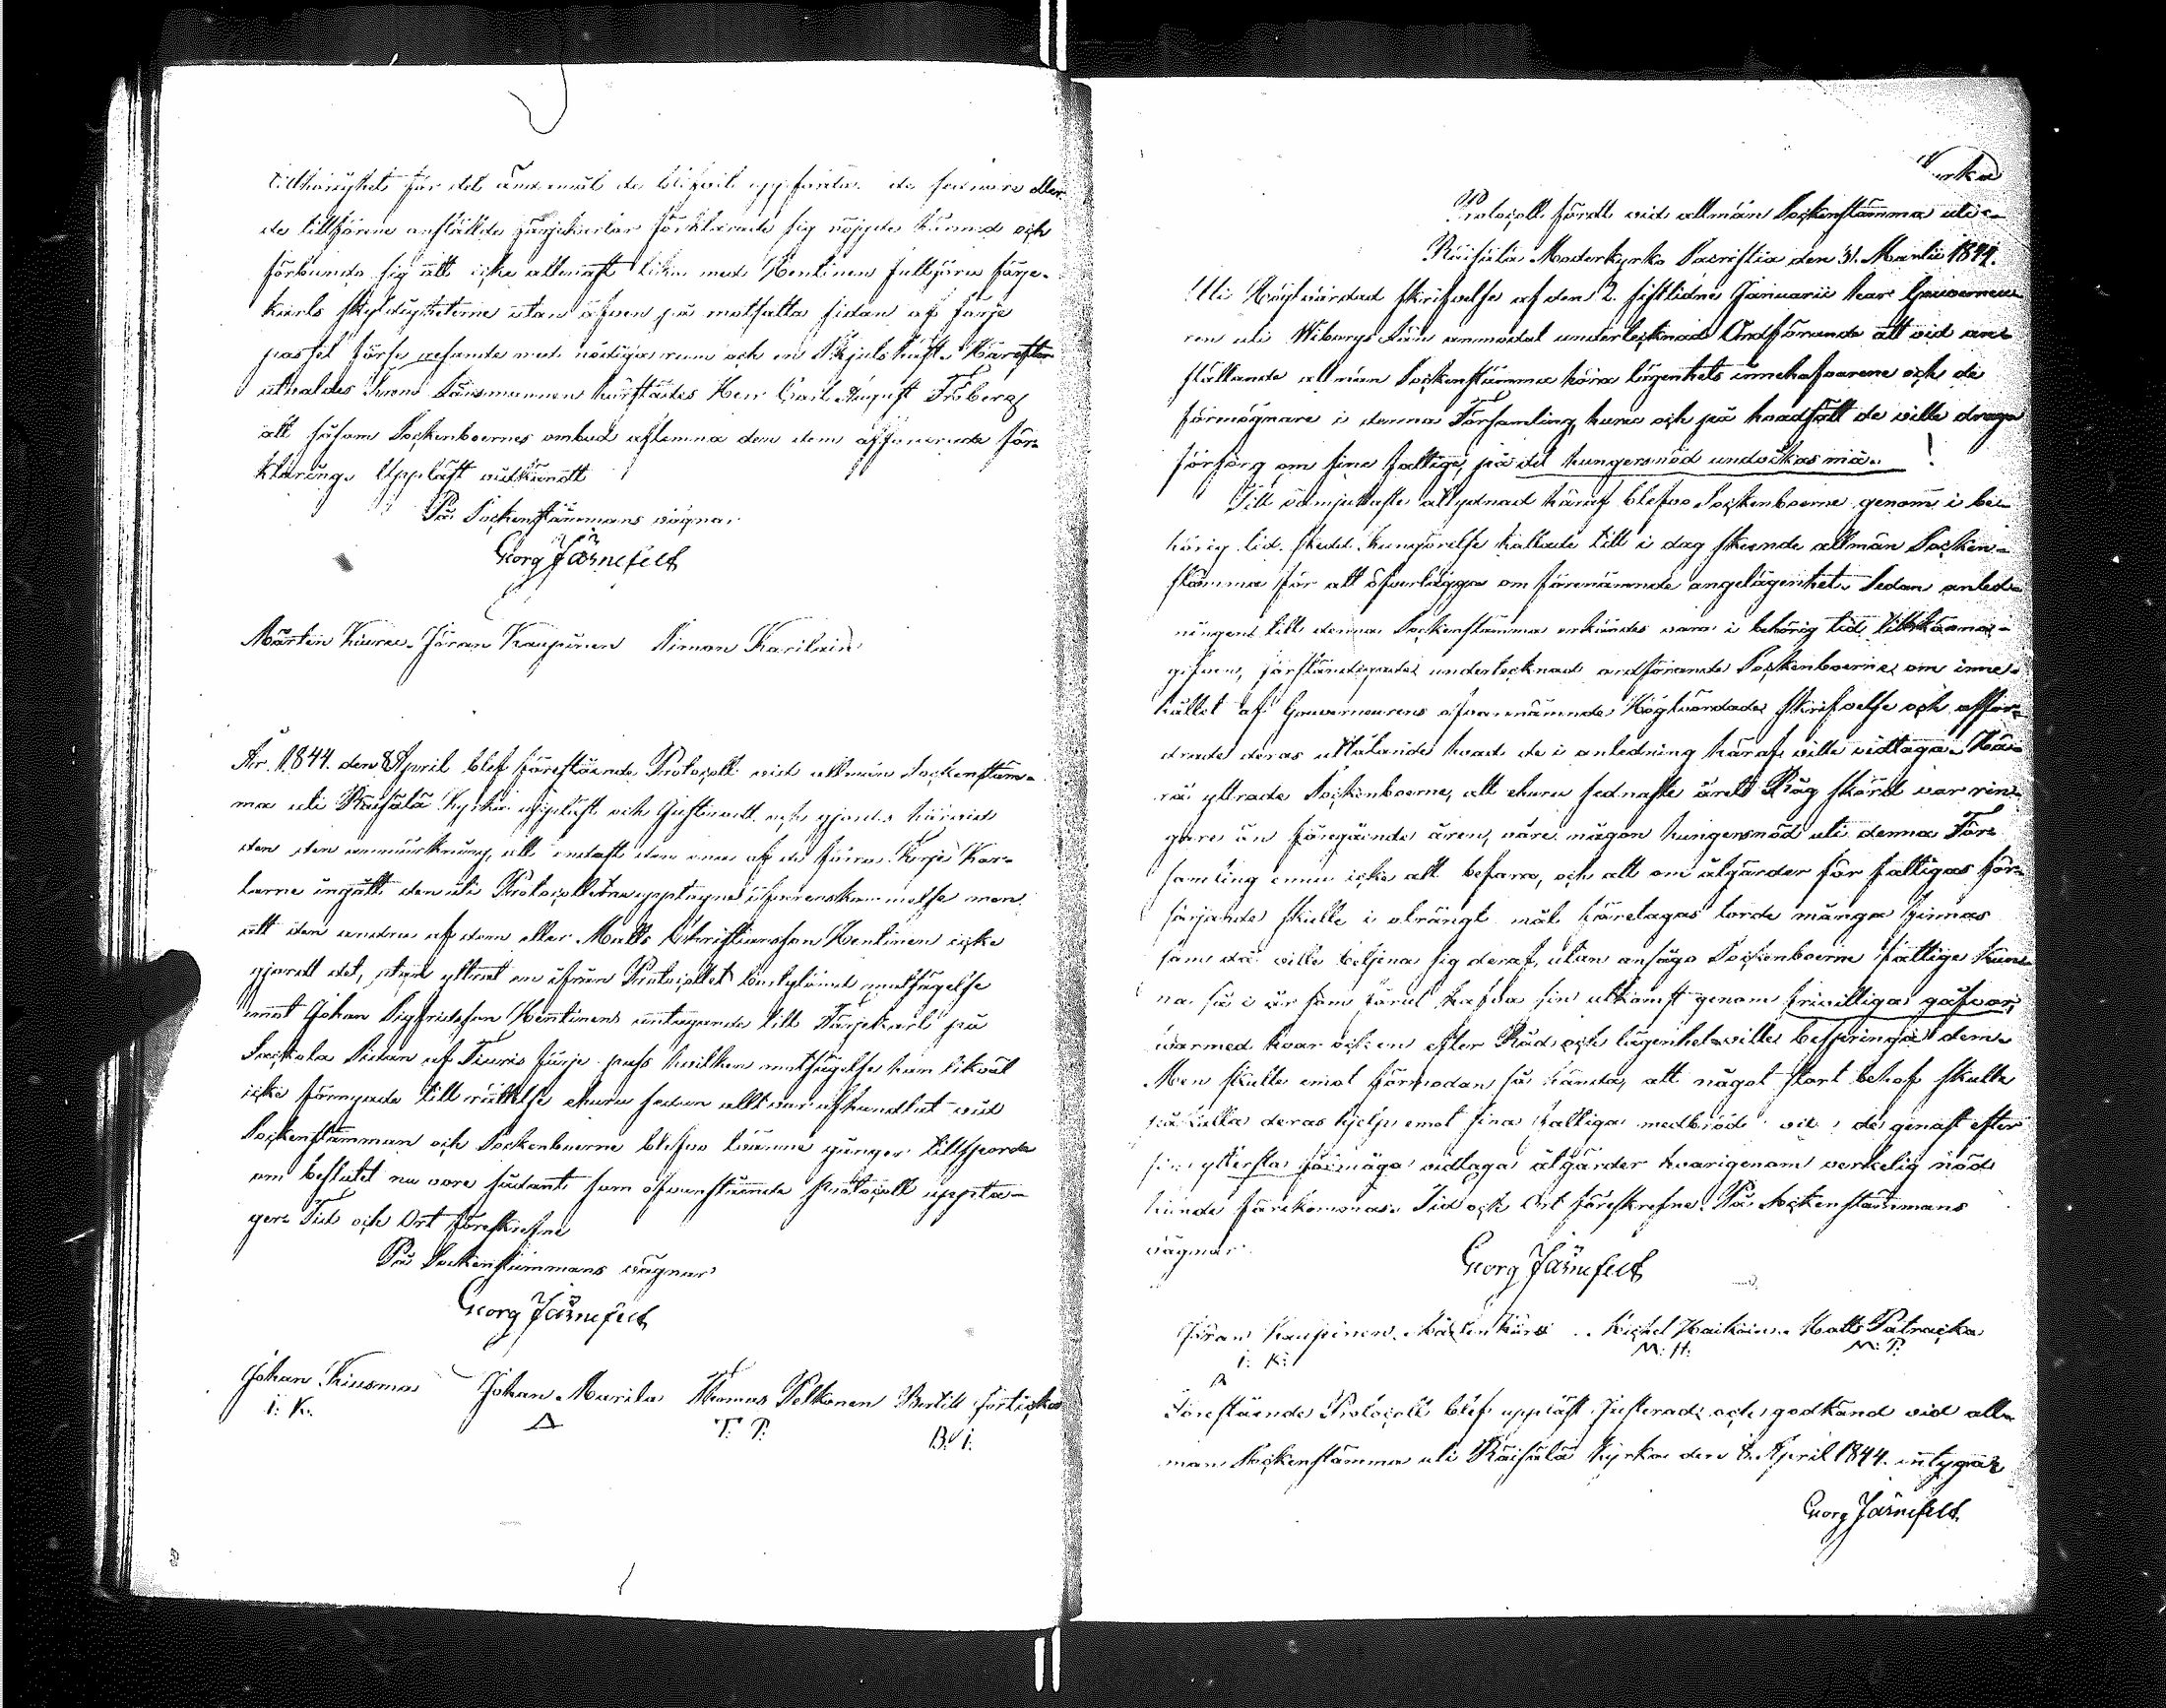 tillhörighet för det ändamål de blifvit uppförda. de sednare eller
de tillförene anstälde färjekarlar förklarade sig nöjde härmed och
förbundo sig att icke allenast lika med Hentinen fullgöra färje-
karls skyldigheterne utan äfven på motsatta sidan af färje
passet förse resande med nödiga rum och en Skjutshäst. Härefter
utvaldes Krono Länsmannen härstädes Herr Carl August Friberg
att såsom Sockenboernes ombud aflemna den dem affordrade för-
klaring. Uppläst vidkändt
På Sockenstämmans vägnar
Georg Järnefelt
Mårten Kiuru. Jöran Kaupinen Simon Karilain
År 1844. den 8 April blef förestående Protocoll vid allmän Sockenstäm-
ma uti Räisälä Kyrka uppläst och Justeradt och gjordes härvid
den anmärkning, att endast den ena af de förra Färje Kar-
larne ingått den uti Protocollet upptagne öfverenskommelse men
att den andra af dem eller Matts Christiansson Hentinen icke
gjordt det, utan yttrat en ifrån Protocollet motsägelse
emot Johan Sigfridsson Hentinens antagande till Färjekarl på
Sackola Sidan af Tiuris färje pass hvilken motsägelse han likväl
icke förmådde till rättelse ehuru sedan allt var afhandlat vid
Sockenstämman och Sockenboerne blefvo tvänne gånger tillsporde
om beslutet nu vore sådant som ofvanstående Protocoll uppta-
ger. Tid och Ort föreskrefne
På Sockenstämmans vägnar
Georg Järnefelt
Johan Kiusma Johan Marila Thomas Pelkonen Bertill
I: K. T: P. B: I.
Protocoll fördt vid allmän Sockenstämma uti
Räisälä Moderkyrko Sacristia den 31. Martii 1844.
Uti Högtvördad skrifvelse af den 2. sistlidne Januarii har Gouverneu-
ren uti Wiborgs Län anmodat undertecknad Ordförande att vid an-
ställande allmän Sockenstämma höra lägenhets innehafvarene och de
förmögnare i denna Församling, huru och på hvadsätt de ville draga
försorg om sine fattige, på det hungersnöd undvikas må. !
Till ödmjukaste åtlydnad häraf blefvo Sockenboerne genom i be-
hörig tid skedd kungörelse kallade till i dag skeende allmän Socken-
stämma för att öfverlägga om förenämnde angelägenhet. Sedan anled-
ningen till denna Sockenstämma erkändes vara i behörig tid tillkänna-
gifven, förständigades undertecknad ordförande Sockenboerne om inne-
hållet af Gouverneurens ofvannämnde Högtvördade skrifvelse och affor-
drade deras utlåtande hvad de i anledning häraf ville vidtaga. Här-
på yttrade Sockenboerne, att ehuru sednaste årets Råg skörd var rin-
gare än föregående åren, vore någon hungersnöd uti denna För-
samling ennu icke att befara, och att om åtgärder för fattigas för-
sörjande skulle i oträngt mål företagas torde många finnas
som då ville betjena sig deraf, utan ansågo Sockenboerne fattige kun-
na så i år som förut hafva sin utkomst genom frivilliga gåfvor,
hvarmed hvar och en efter Råd och lägenhet ville bespringa dem.
Men skulle emot förmodan så hända, att något stort behof skulle
påkalla deras hjelp emot sina fattiga medbröder vil de genast efter
sin yttersta förmåga vidtaga åtgärder hvarigenom verkelig nöd
kunde förekommas. Tid och Ort föreskrefne. På Sockenstämmans
vägnar.
Georg Järnefelt
Jöran Kaupinen. Mårten Kiuru Michel Haikoin. Matts Patracka
I: K: M: H: M: P.
Förestående Protocoll blef uppläst Justerad och godkänd vid all-
män Sockenstämma uti Räisälä Kyrka den 8. April 1844. intygar
Georg Järnefelt